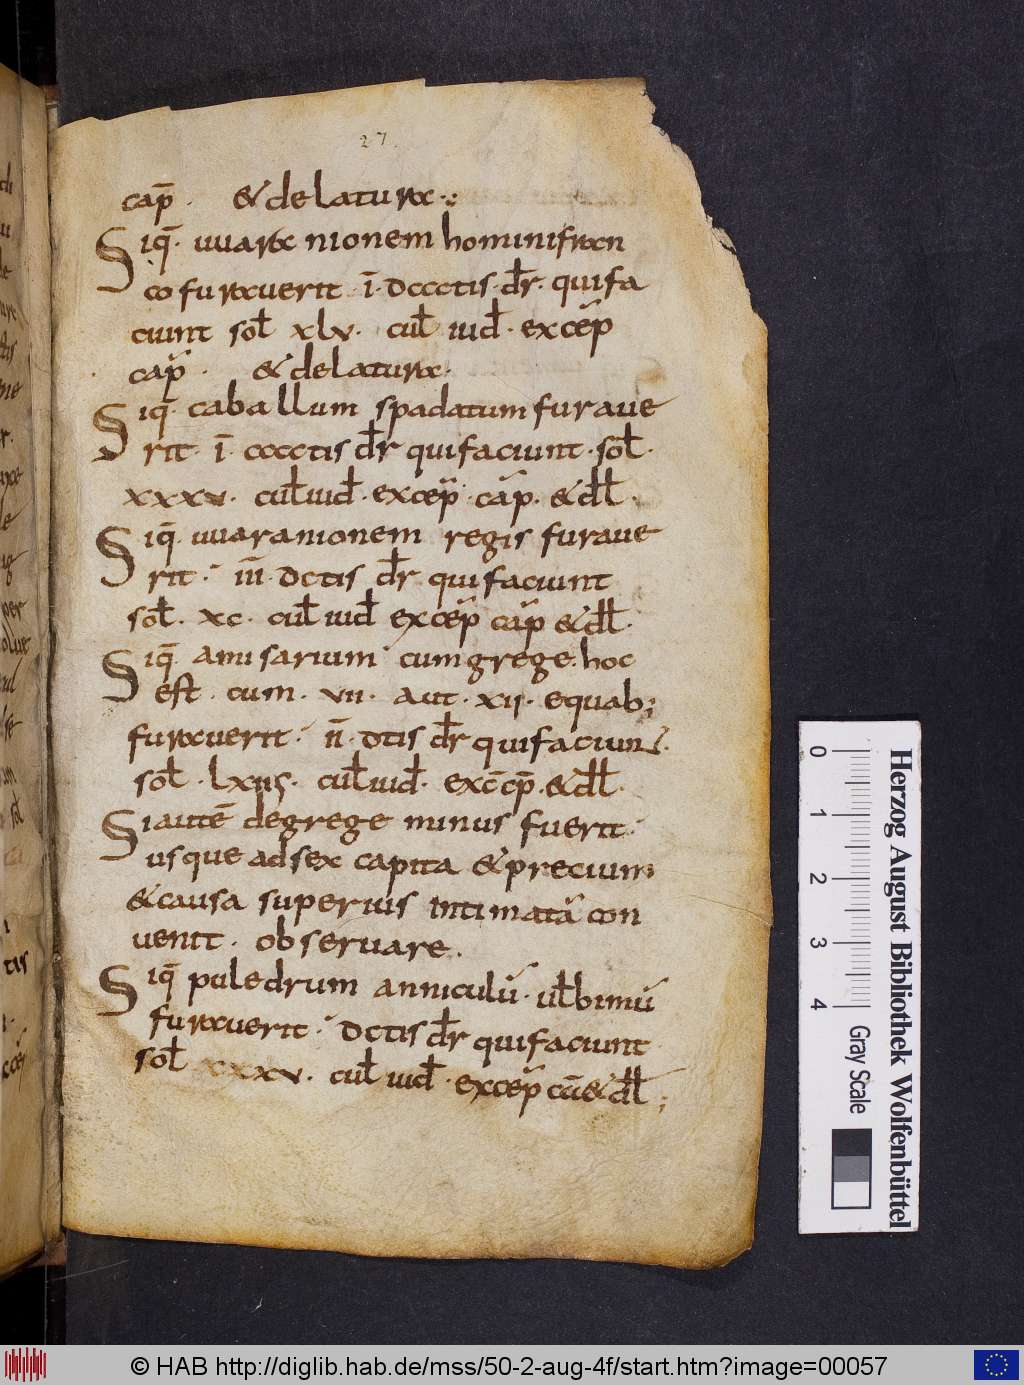 27.
cap̄ . & delatura.:
Siq̄. uuaranionem hominifran
co furauerit .ī. dcccctis. dr̄. quifa
ciunt sol̄ xlv. cul̄ iud̄. excep̄
cap̄ . & delatura.
Siq̄ caballum spadatum furaue
rit. ī. ccccctis dr̄ quifaciunt. sol̄.
xxxv. cul̄ iud̄. excep̄. cap̄. & dl̄l̄.
Siq̄. uuaranionem regis furaue
rit. iiī. dctis dr̄ quifaciunt
sol̄. xc. cul̄ iud̄ excep̄ cap̄ & dl̄l̄.
Siq̄. amisarium cumgrege. hoc
est. cum. vii. aut. xii. equab;
furauerit. iī. dtis dr̄ quifaciunt.
sol̄. lxiis. cul̄ iud̄. exc̄cp̄. & dl̄l̄.
Siautē degrege minus fuerit.
usque adsex capita & precium;
& causa superius intimata con
uenit. obseruare.
Siq̄ puledrum anniculū. ul̄ bimū
furauerit. dctis dr̄ quifaciunt
sol̄ xxxv. cul̄ iud̄. excep̄ cā & dl̄l̄;
0 1 2 3 4
Gray Scale
Herzog August Bibliothek Wolfenbüttel
© HAB http://diglib.hab.de/mss/50-2-aug-4f/start.htm?image=00057